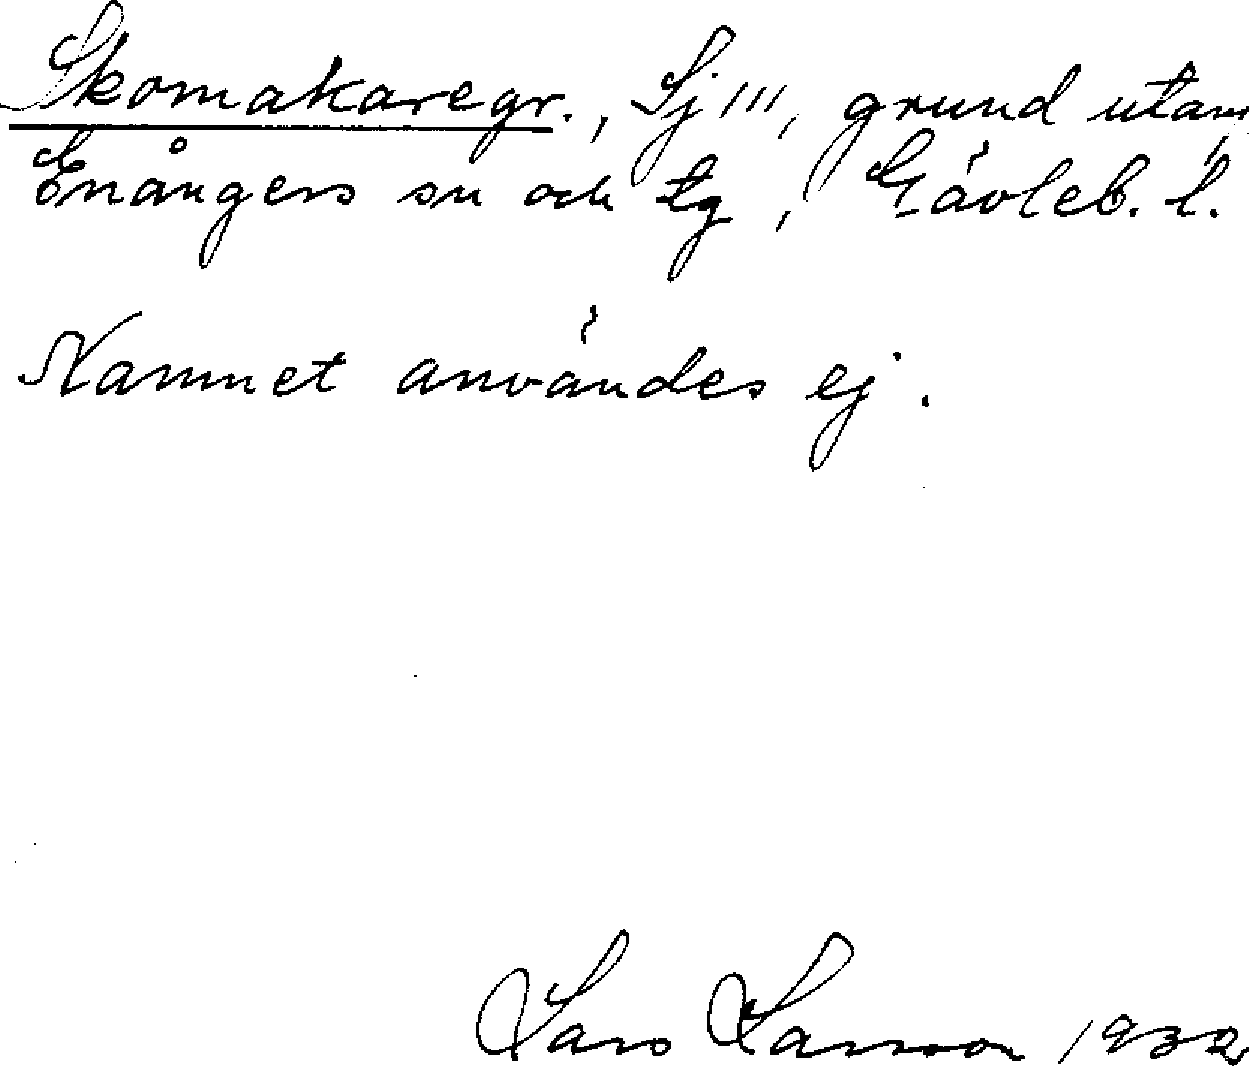 Skomakaregr., Sj 111, grund utanf.
Enångers sn och tg, Gävleb. l.
Namnet användes ej.
Lars Larsson 1932